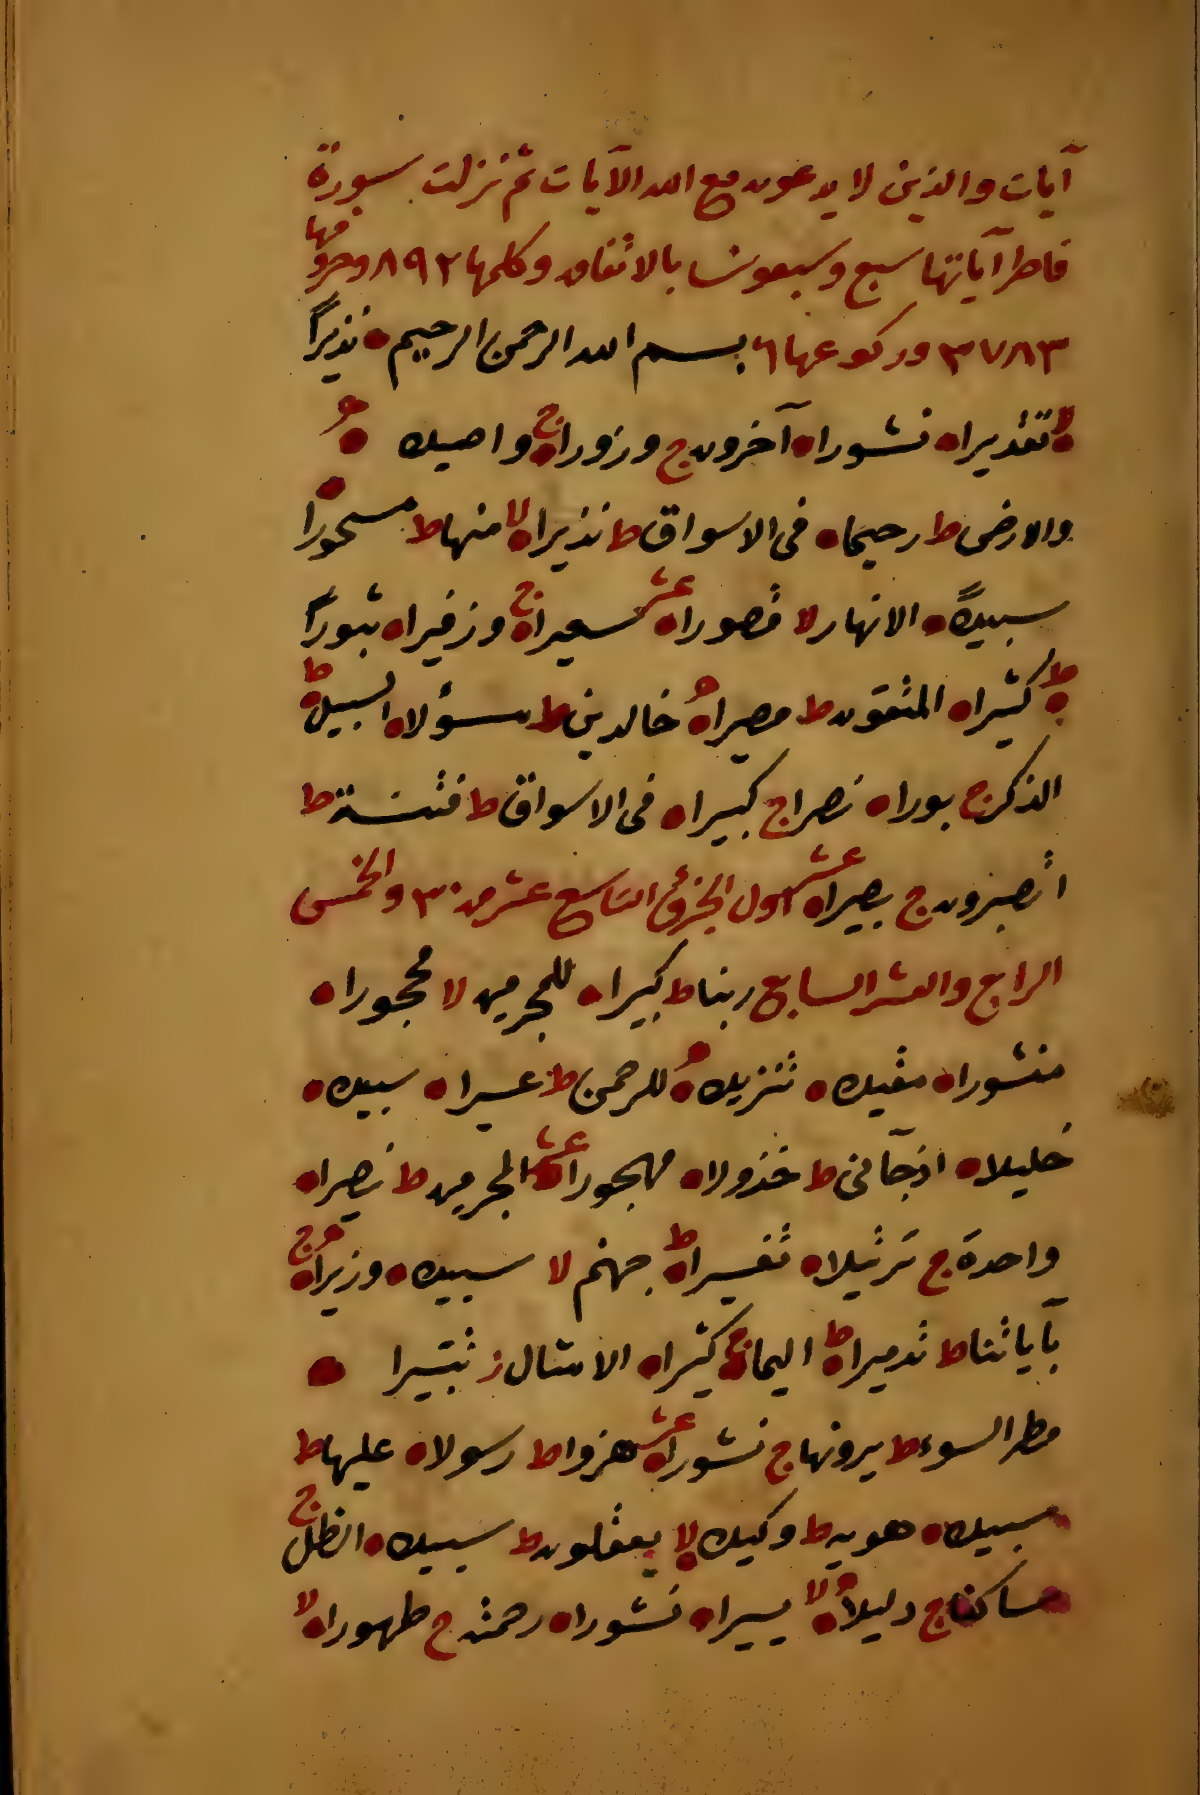 آيات والذين لا يدعون مع الله الآيات ثم نزلت سورة
فاطر آياتها سبع وسبعون بالاتفاق وكلمها ٨٩٢ وحروفها
٣٧٨٣ وركوعها ٦ بسم الله الرحمن الرحيم ه نذيرًا
ه لا تقديرا ه نشورا ه آخرون ج وزورا ه ج واصيلا ه
والارض ط رحيما ه فى الاسواق ط نذيرا ه لا منها ط مسحورًا ه
سبيلًا ه الانهار لا قصورا ه عشر سعيرا ه ج وزفيرا ه ثبورًا
ه ط كثيرا ه المتقون ط مصيرا ه خالدين ط مسؤلا ه السبيل ه ط
الذكر ج بورا ه نصرا ج كبيرا ه فى الاسواق ط فتنة ط
اتصبرون ج بصيرا ه عشر اول الجزؤ التاسع عشر من ٣٠ والخمس
الرابع والعشر السابع ربنا ط كبيرا ه للمجرمين لا محجورا ه
منثورا ه مقيلا ه تنزيلا ه للرحمن ط عسيرا ه سبيلا ه
خليلا ه اذ جآءنى ط خذولا ه مهجورا ه عشر المجرمين ط نصيرا ه
واحدة ج ترتيلا ه تفسيرا ه ط جهنم لا سبيلا ه وزيرا ه ج
بآياتنا ط تدميرا ه ط اليما ه ج كثيرا ه الامثال ز تتبيرا ه
مطر السوء ط يرونها ج نشورا ه عشر هزوا ط رسولا ه عليها ط
سبيلا ه هويه ط وكيلا ه لا يعقلون ط سبيلا ه الظل ج
ساكنا ج دليلا ه لا يسيرا ه نشورا ه رحمته ج طهورا ه لا